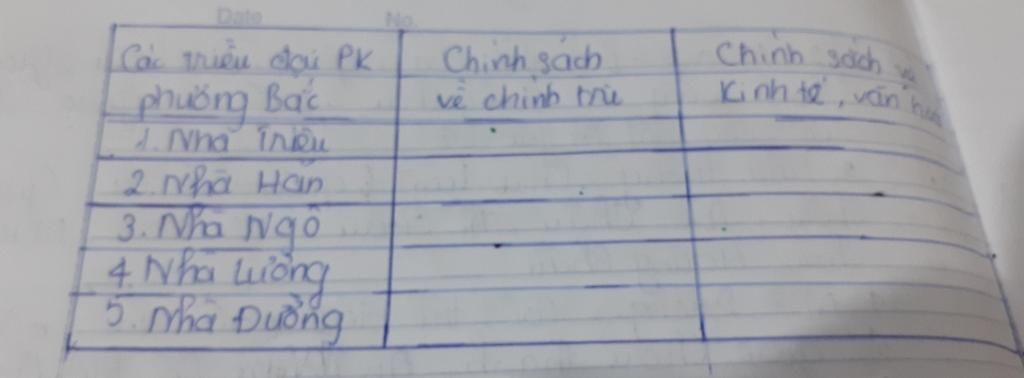 Date No.
Các triều đại PK Chính sách Chính sách về
phương Bắc về chính trị Kinh tế, văn hoá
1. Nhà Triệu
2. Nhà Hán
3. Nhà Ngô
4. Nhà Lương
5. Nhà Đường